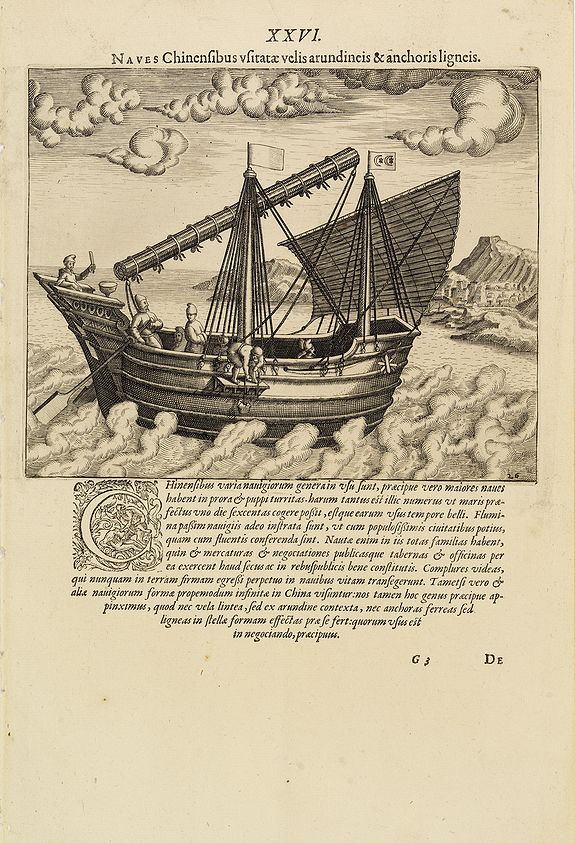 XXVI.
NAVES Chinensibus vsitatæ velis arundineis & anchoris ligneis.
26
CHinensibus varia nauigiorum genera in vsu sunt, præcipue vero maiores naues
habent in prora & puppi turritas. harum tantus est illic numerus vt maris præ-
fectus vno die sexcentas cogere poßit, estque earum vsus tempore belli. Flumi-
na paßim nauigiis adeo instrata sunt, vt cum populosißimis ciuitatibus potius,
quam cum fluentis conferenda sint. Nautæ enim in iis totas familias habent,
quin & mercaturas & negociationes publicasque tabernas & officinas per
ea exercent haud secus ac in rebuspublicis bene constitutis. Complures videas,
qui nunquam in terram firmam egreßi perpetuo in nauibus vitam transegerunt. Tametsi vero &
aliæ nauigiorum formæ propemodum infinitæ in China visuntur: nos tamen hoc genus præcipue ap-
pinximus, quod nec vela lintea, sed ex arundine contexta, nec anchoras ferreas sed
ligneas in stellæ formam effectas præ se fert: quorum vsus est
in negociando, præcipuus.
G 3 DE